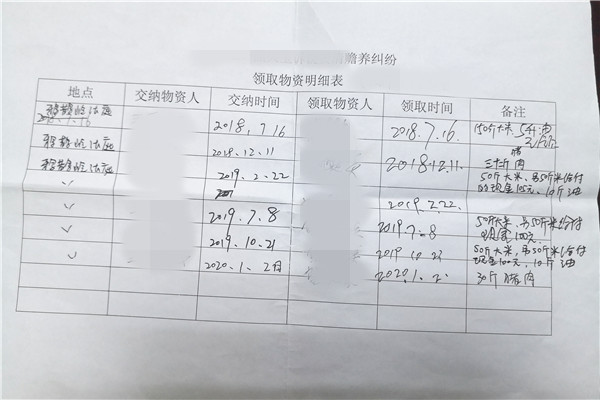 赡养纠纷
领取物资明细表
地点 交纳物资人 交纳时间 领取物资人 领取时间 备注
2018.7.16 2018.7.16. 150斤大米 5斤油
法庭 2018.12.11 2018.12.11. 三十斤肉
法庭 2019.2.22 2019.2.22. 50斤大米,另50斤米给付
现金105元、10斤油
2019.7.8 2019.7.8 50斤大米、另50斤米给付
现金100元、
2019.10.21 2019.10.22 50斤大米,另50斤米给付
现金100元、10斤油
2020.1.2月 2020.1.2. 30斤猪肉